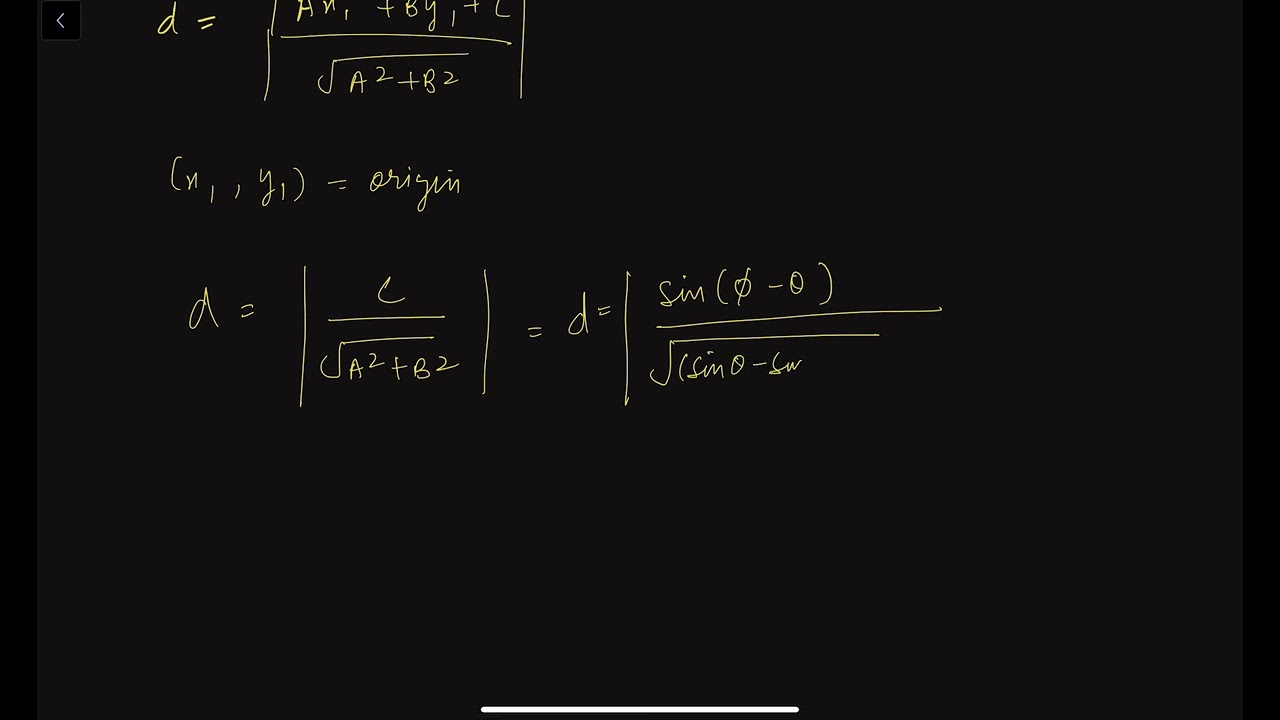 d = | Ax₁ + By₁ + C / √A² + B² |
(x₁ , y₁) = origin
d = | C / √A² + B² | = d = | sin(ϕ - θ) / √(sinθ - sin